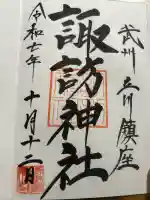 武州立川鎮座
諏訪神社
令和七年十月十三日